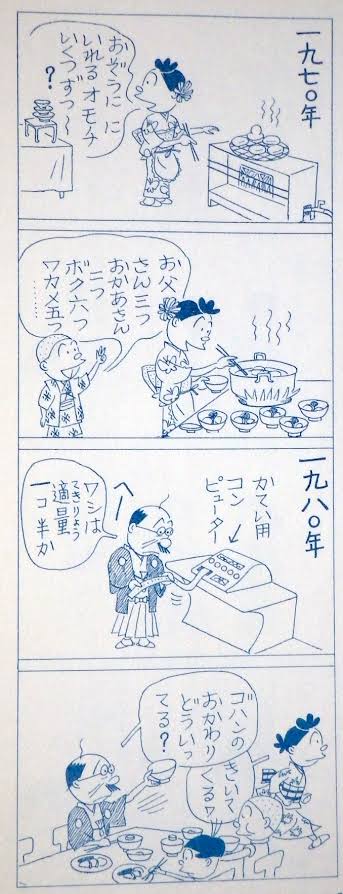 一九七〇年
おぞうに に
いれる オモチ
いくつずつ〜
?
お父
さん三つ
おかあさん
二つ
ボク六つ
ワカメ五つ
………
一九八〇年
かてい用
コン
ピューター
ワシは
てきりょう
適量
一コ半か
ゴハンの
おかわり
どういっ
てる?
きいて
くるワ